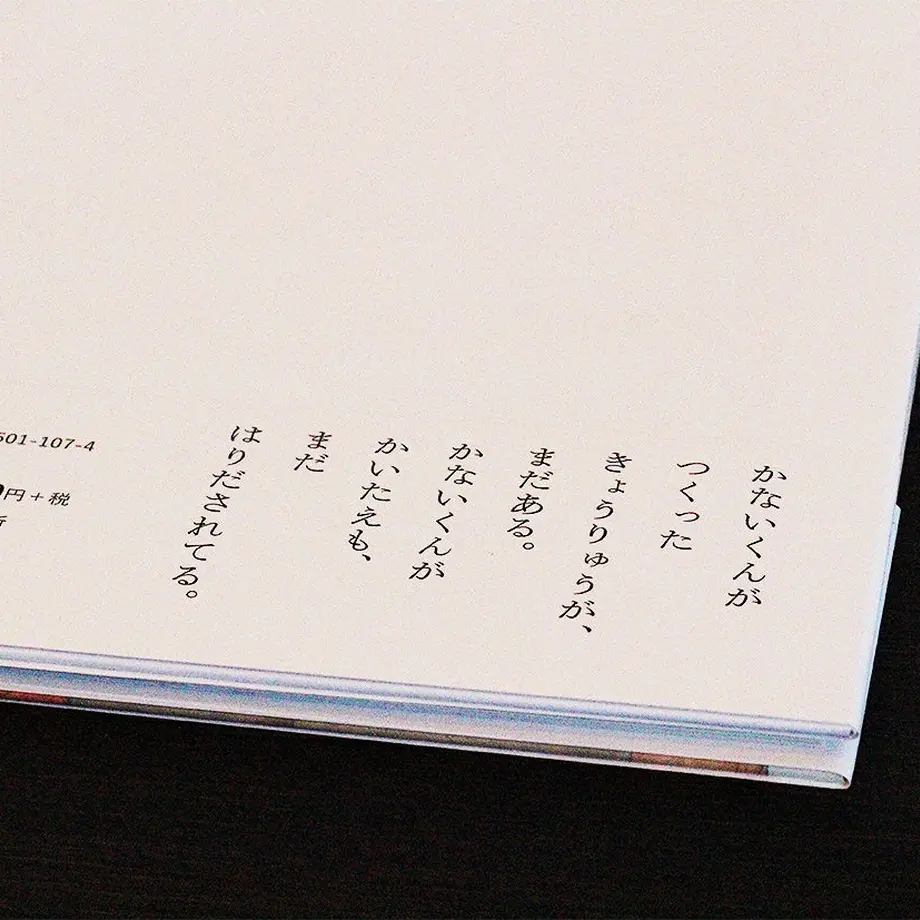 かないくんが
つくった
きょうりゅうが、
まだある。
かないくんが
かいたえも、
まだ
はりだされてる。
501-107-4
円+税